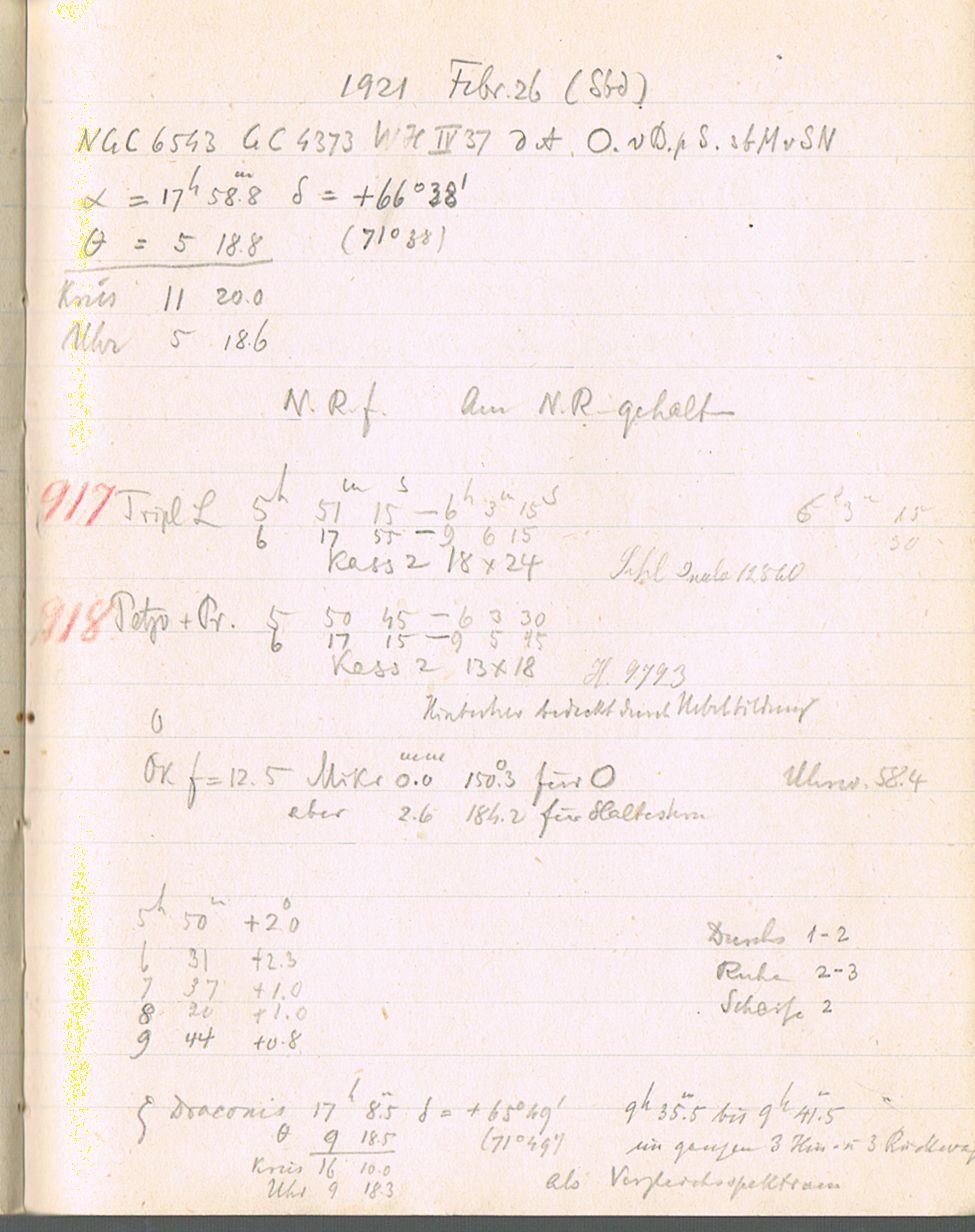 1921 Febr. 26 (Sbd)
NGC 6543 GC 4373 WH IV 37 O. vB. p S. sbM vSN
α = 17h 58.m8 δ = +66°38'
θ = 5 18.8 (71°38)
Kreis 11 20.0
Uhr 5 18.6
N. R. f. Am N.R. gehalt
917 Tripl L 5h 51m 15s — 6h 3m 15s 6h 3m 15
6 17 55 — 9 6 15 30
Kass 2 18 x 24
918 Petzv + Pr. 5 50 45 — 6 3 30
6 17 15 — 9 5 45
Kass 2 13 x 18 H. 9793
bedeckt durch Nebelbildung
0
Ok f = 12.5 Mikr 0.0mm 150.°3 für O Uhrw. 58.4
aber 2.6 184.2 für Haltestern
5h 50m +2.°0
6 31 +2.3
7 37 +1.0
8 20 +1.0
9 44 +0.8
Durchs 1-2
Ruhe 2-3
Schärfe 2
ζ Draconis 17h 8.m5 δ = +65°49' 9h 35.m5 bis 9h 41.m5
θ 9 18.5 (71°49') im ganzen 3 Hin- u 3 Rückweg
Kreis 16 10.0
Uhr 9 18.3 als Vergleichsspektrum